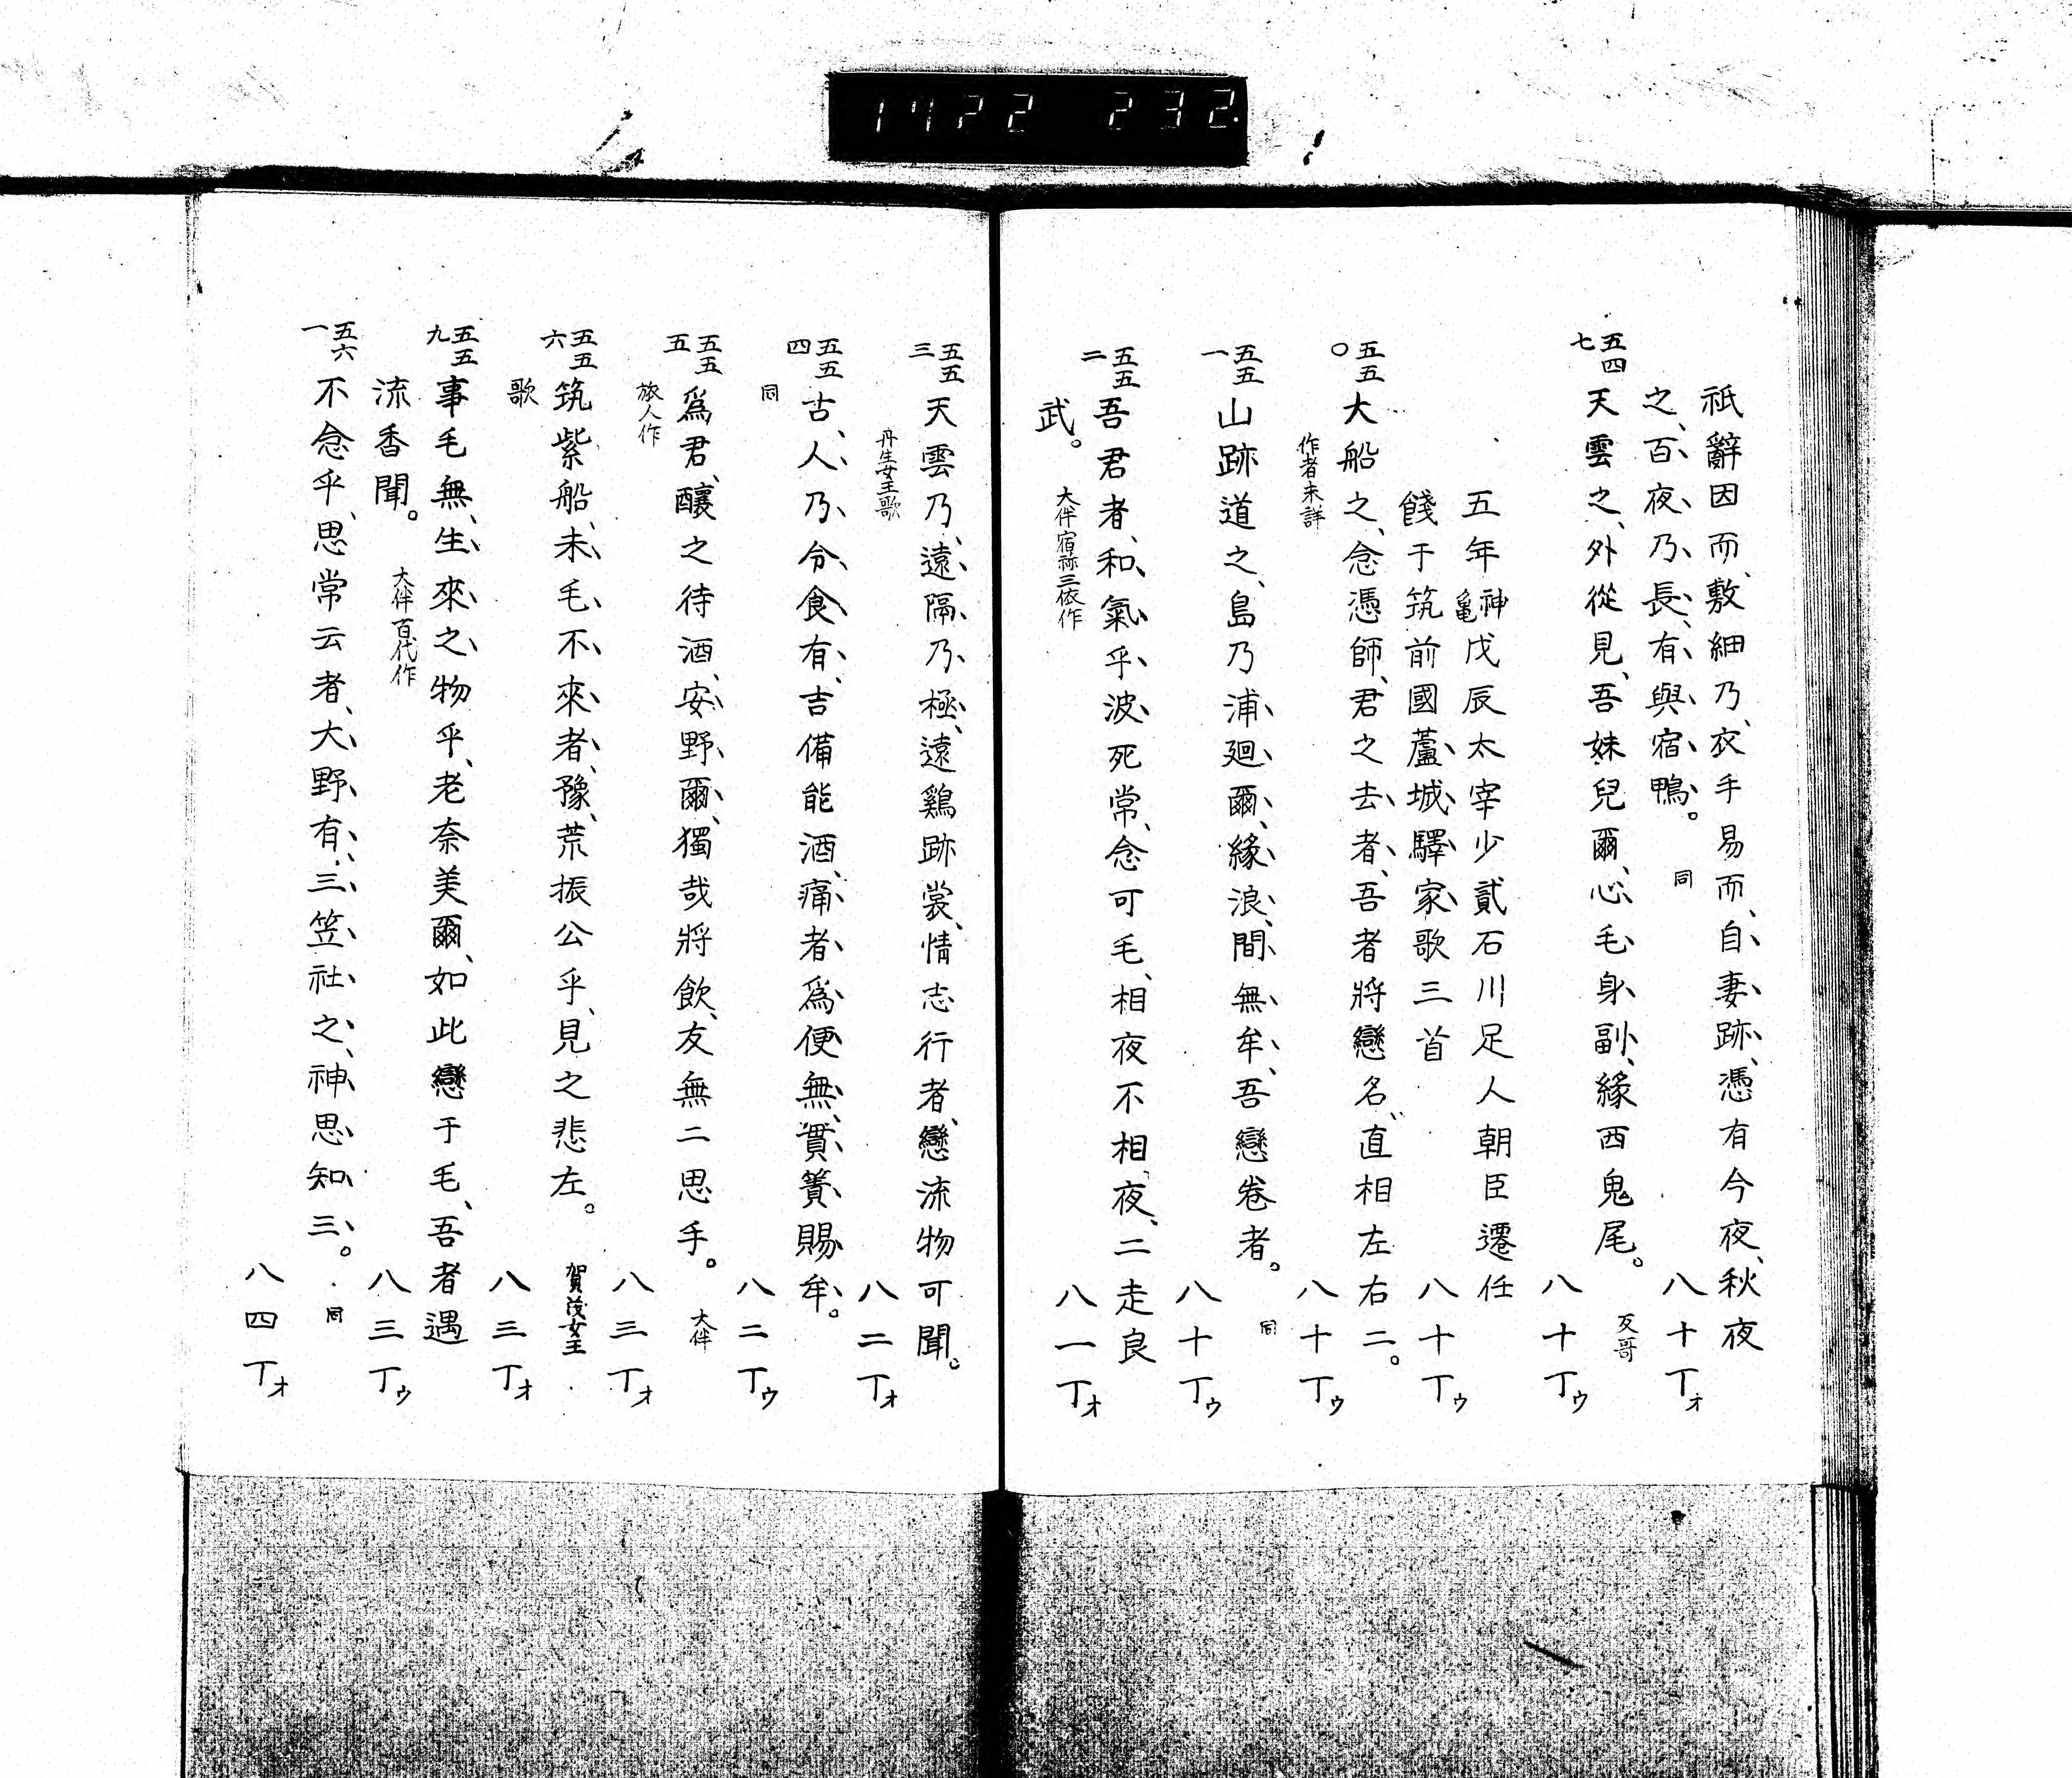 1422 232.
祇辭因而、敷細乃、衣手易而、自妻跡、憑有今夜、秋夜
之、百夜乃、長、有與宿鴨。 同 八十丁オ
五四七 天雲之、外從見、吾妹兒爾、心毛身副、緣西鬼尾。 反哥 八十丁ウ
五年神亀戊辰太宰少貳石川足人朝臣遷任
餞于筑前國蘆城驛家歌三首 八十丁ウ
五五〇 大船之、念憑師、君之去者、吾者將戀名、直相左右二。
作者未詳 八十丁ウ
五五一 山跡道之、島乃浦廻爾、緣浪、間無牟、吾戀卷者。 同 八十丁ウ
五五二 吾君者、和氣乎波死常、念可毛、相夜不相夜、二走良
武。 大伴宿祢三依作 八一丁オ
五五三 天雲乃、遠隔乃極、遠鷄跡裳、情志行者、戀流物可聞。
丹生女王歌 八二丁オ
五五四 古、人乃、令食有、吉備能酒、痛者爲便無、貫簀賜牟。
同 八二丁ウ
五五五 爲君、釀之待酒、安野爾、獨哉將飲、友無二思手。 大伴
旅人作 八三丁オ
五五六 筑紫船、未毛不來者、豫、荒振公乎、見之悲左。 賀茂女王
歌 八三丁オ
五五九 事毛無、生來之物乎、老奈美爾、如此戀于毛、吾者遇
流香聞。 大伴百代作 八三丁ウ
五六一 不念乎、思常云者、大野有、三笠社之、神思知三。 同 八四丁オ